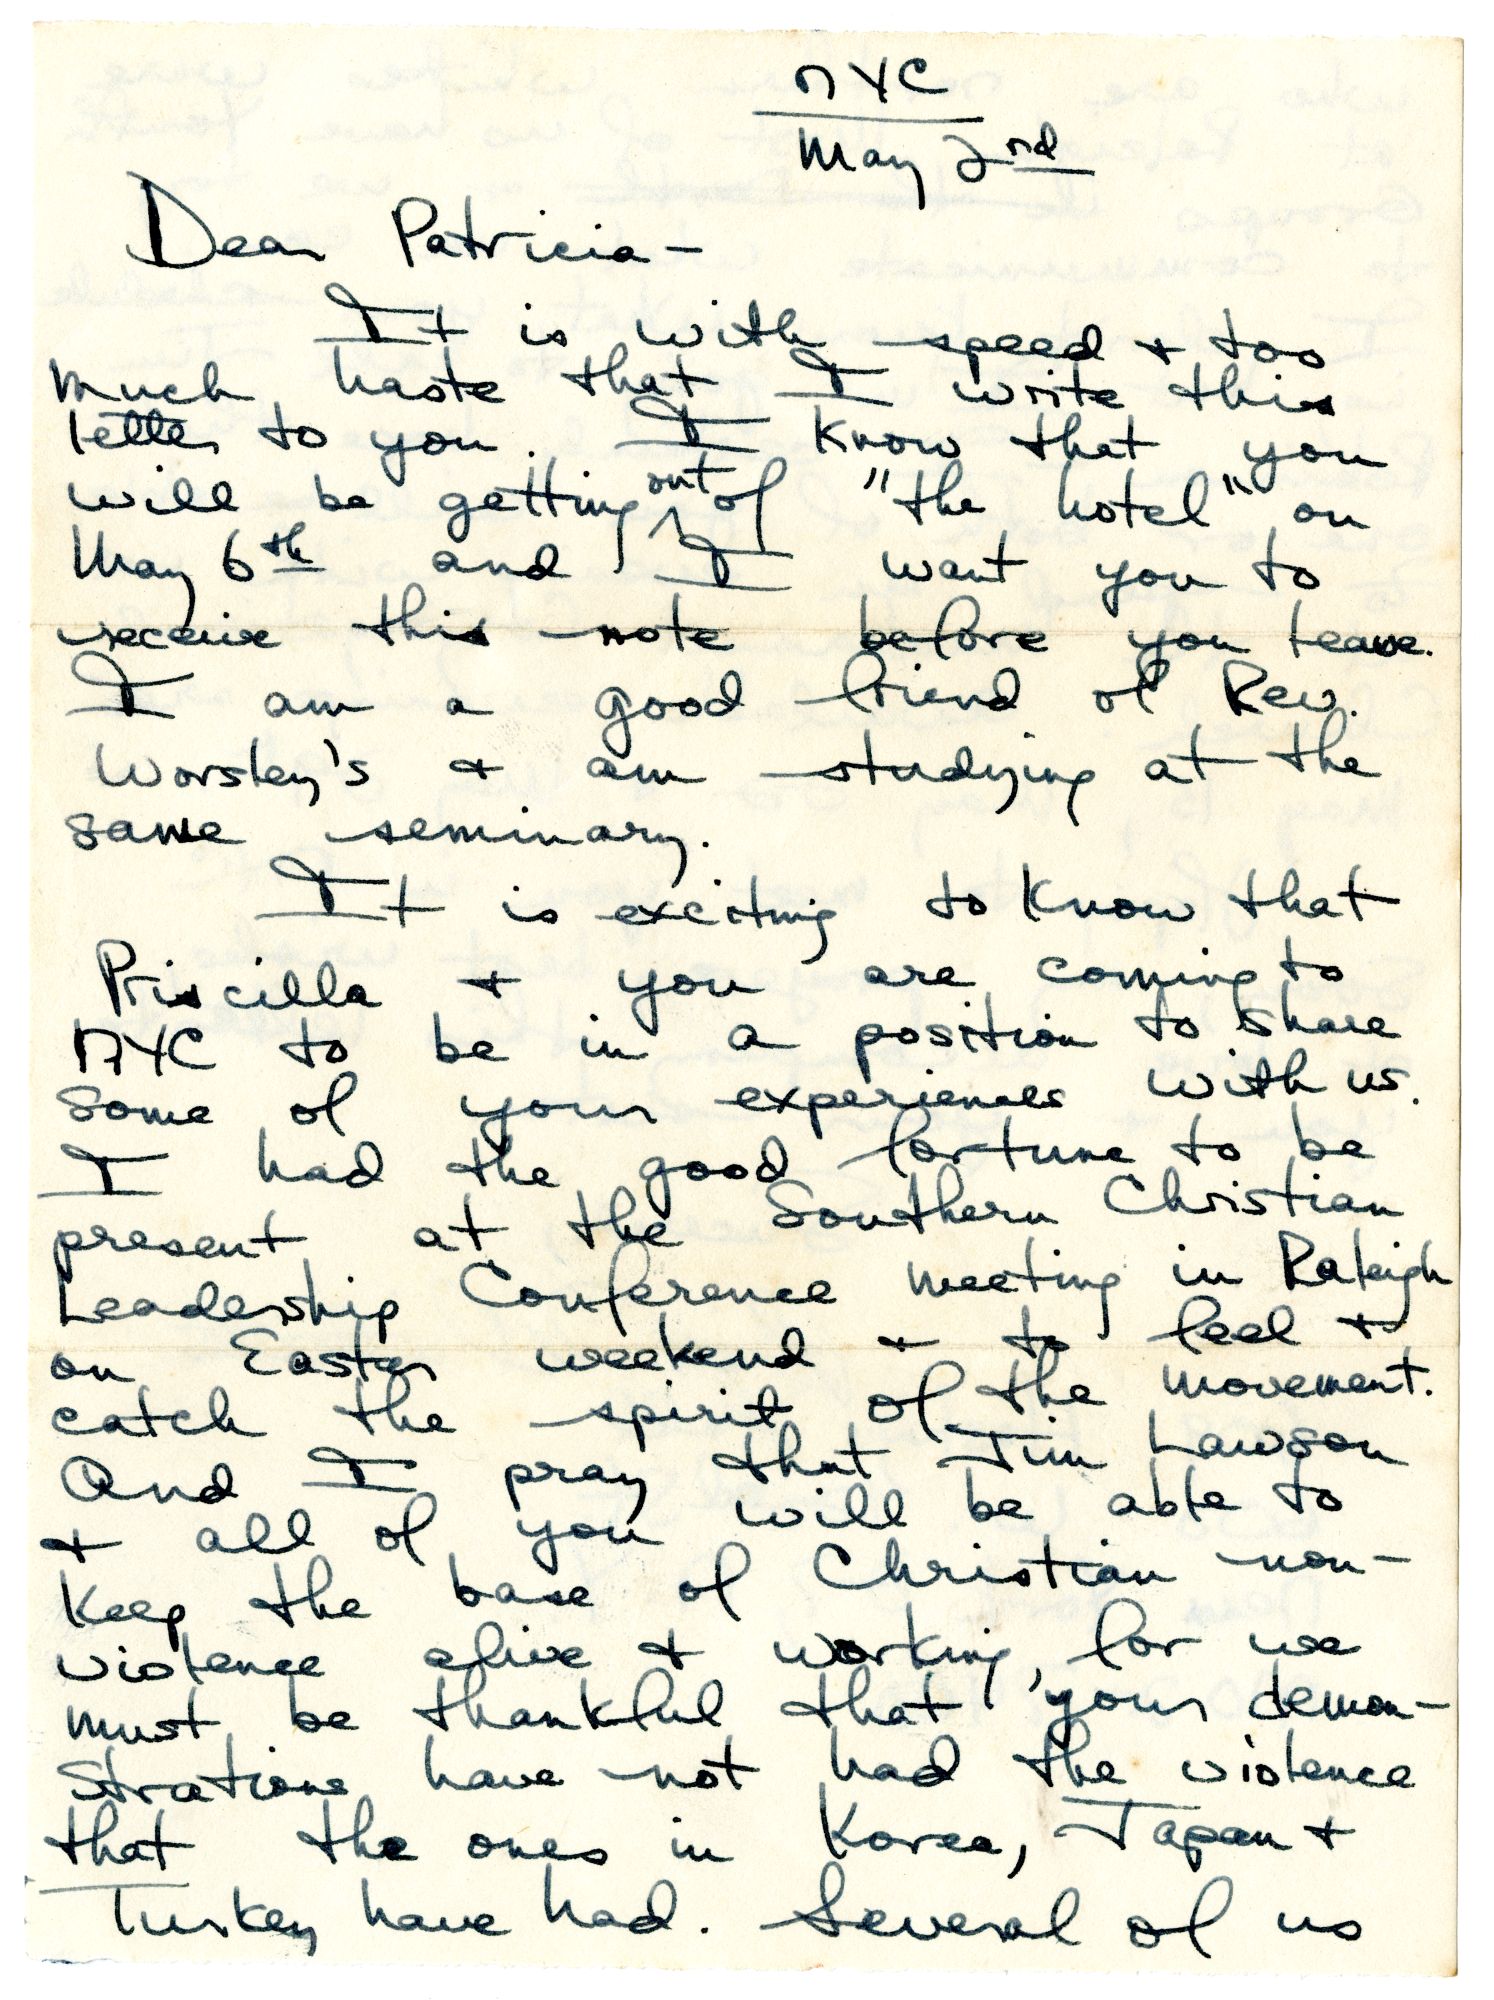 NYC
May 2nd
Dear Patricia—
It is with speed & too
much haste that I write this
letter to you. I know that you
will be getting out of "the hotel" on
May 6th and I want you to
receive this note before you leave.
I am a good friend of Rev.
Worsley's & am studying at the
same seminary.
It is exciting to know that
Priscilla & you are coming to
NYC to be in a position to share
some of your experiences with us.
I had the good fortune to be
present at the Southern Christian
Leadership Conference meeting in Raleigh
on Easter weekend & to feel &
catch the spirit of the movement.
And I pray that Jim Lawson
& all of you will be able to
keep the base of Christian non-
violence alive & working, for we
must be thankful that your demon-
strations have not had the violence
that the ones in Korea, Japan &
Turkey have had. Several of us